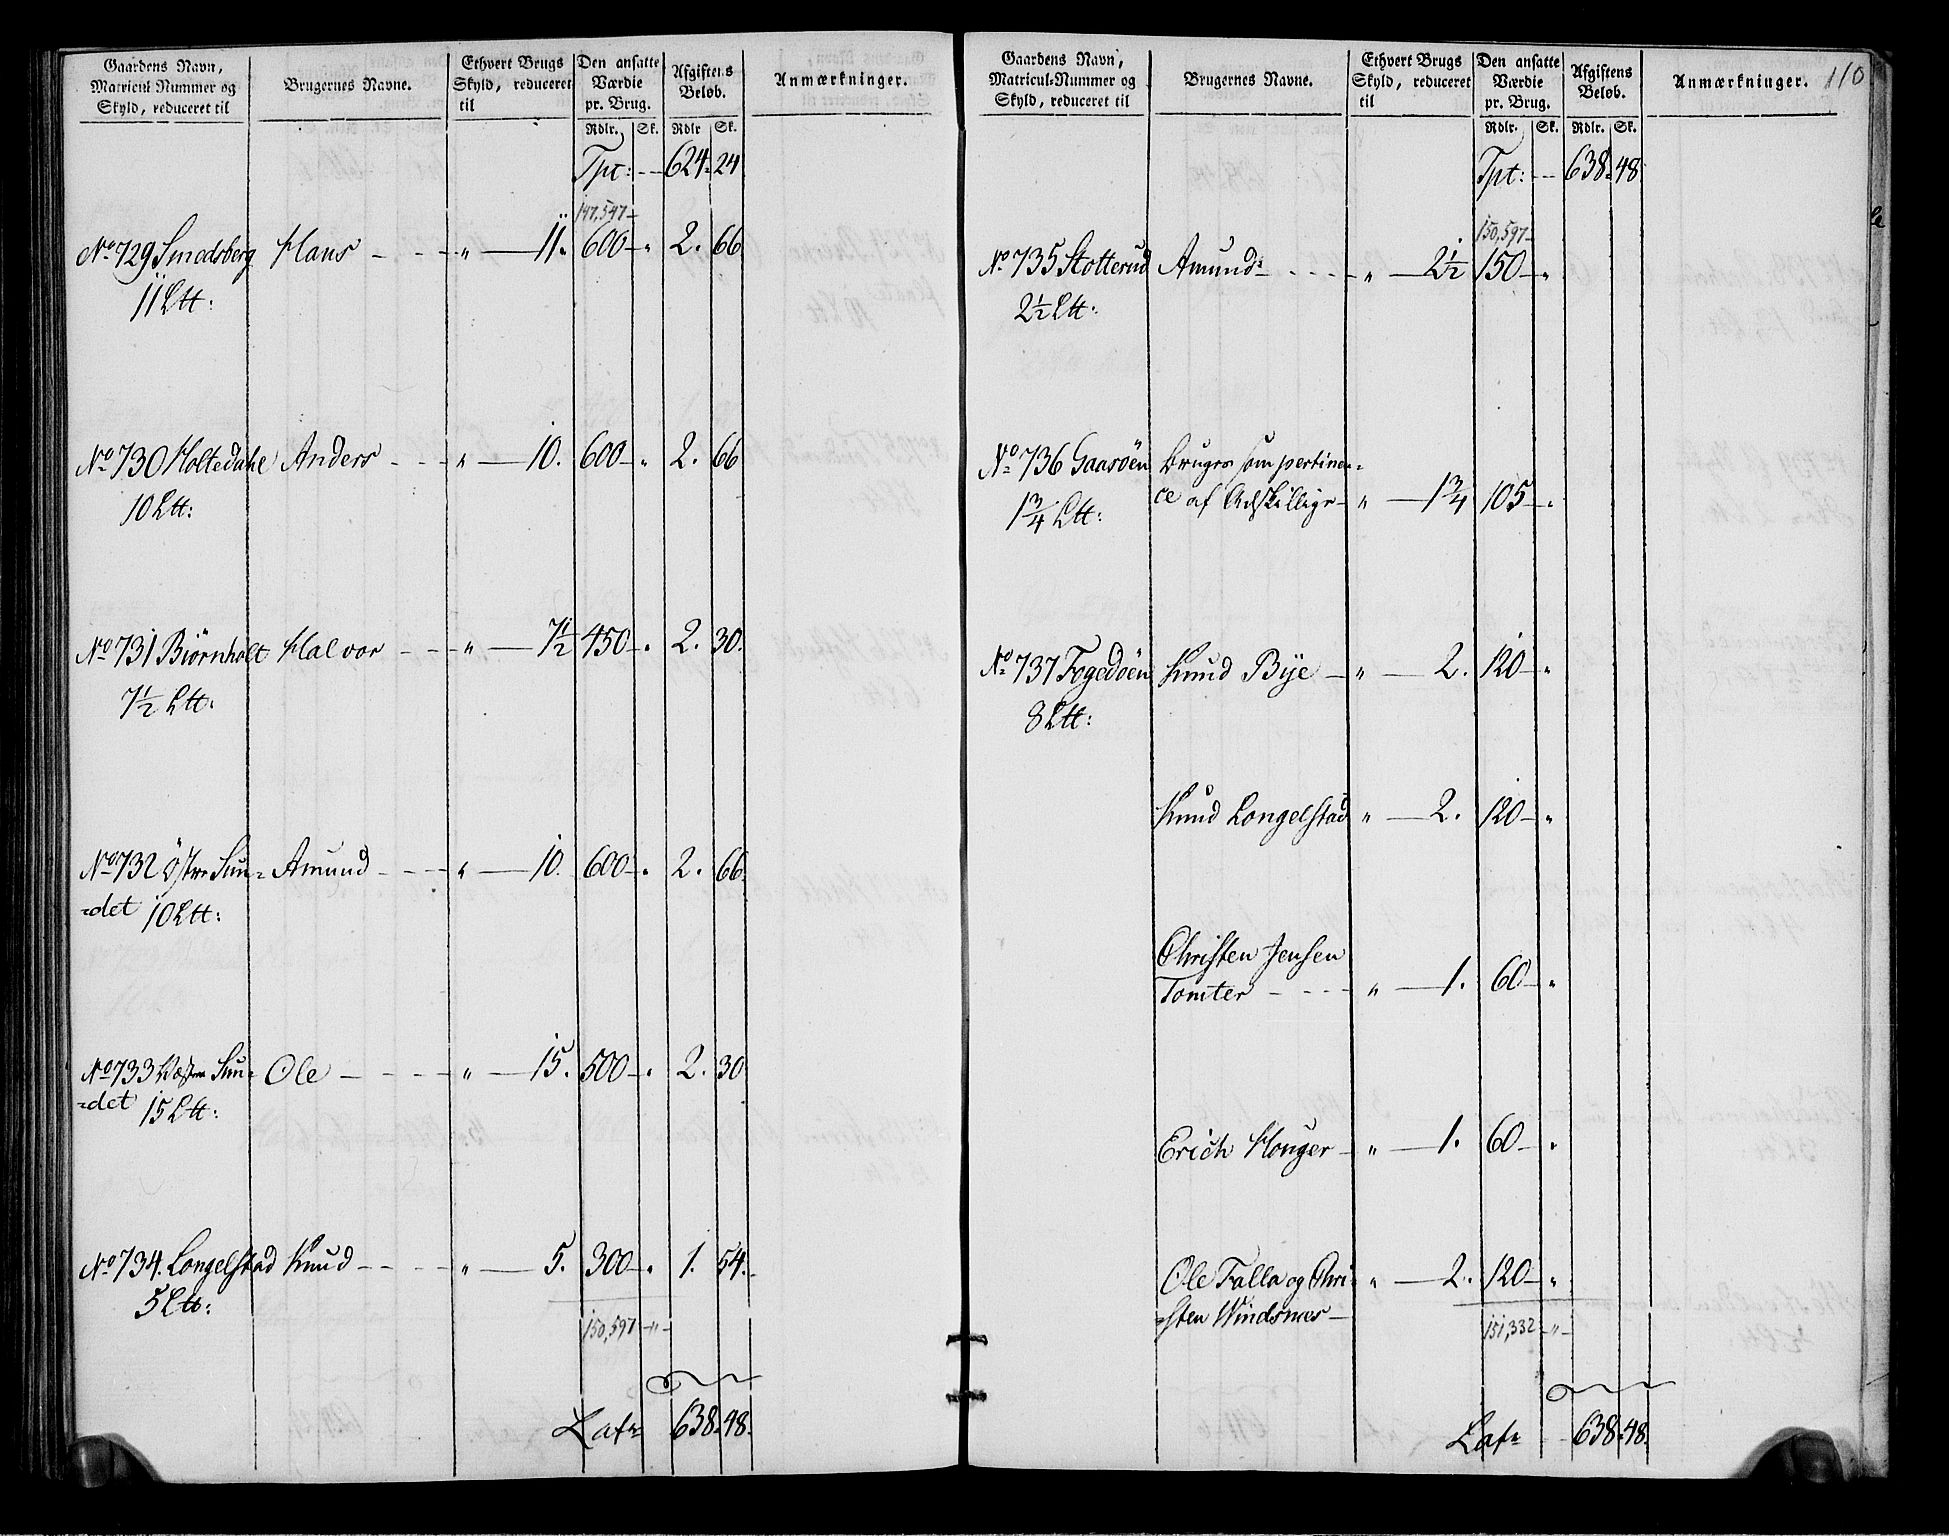 Gaardens Navn, Matricul Nummer og Skyld, reduceret til | Brugernes Navne. | Ethvert Brugs Skyld, reduceret til | Den ansatte Værdie pr. Brug. Rdlr. Sk. | Afgiftens Beløb. Rdlr Sk. | Anmærkninger.
Tpt: — 624. 24
147,547—
No 729 Smedsberg Hans - - - " — 11. 600 — " 2. 66
11 Ltt:
No 730 Holtedahl Anders - - - " — 10. 600 — " 2. 66
10 Ltt:
No 731 Biörnholt Halvor - - - " — 7½ 450 — " 2. 30.
7½ Ltt.
No 732 Östre Sun= Amund - - - " — 10. 600 — " 2. 66.
=det 10 Ltt:
No 733 Vestre Sun= Ole - - - " — 15. 500 — " 2. 30
=det 15 Ltt:
No 734. Longelstad Knud - - - " — 5. 300 — " 1. 54.
5 Ltt:
150,597 — " —
Latr 638. 48.
Gaardens Navn, Matricul-Nummer og Skyld, reduceret til | Brugernes Navne. | Ethvert Brugs Skyld, reduceret til | Den ansatte Værdie pr. Brug. Rdlr. Sk. | Afgiftens Beløb. Rdlr. Sk. | Anmærkninger. 110
Tpt: — 638. 48
150,597—
No 735 Stotterud Amund: - - - " — 2½ 150 — "
2½ Ltt.
No 736 Gaasöen Bruges som pertinen=
1¾ Ltt: ce af Adskillige — " — 1¾ 105 — "
No 737 Fogedöen Knud Bye — " — 2. 120 — "
8 Ltt:
Knud Longelstad " — 2. 120 — "
Christen Jensen
Tomter - - - " — 1. 60 — "
Erich Houger — " — 1. 60 — "
Ole Falla og Chri= " — 2. 120 — "
=sten Windsnes —
151,332 — " —
Latr 638. 48.